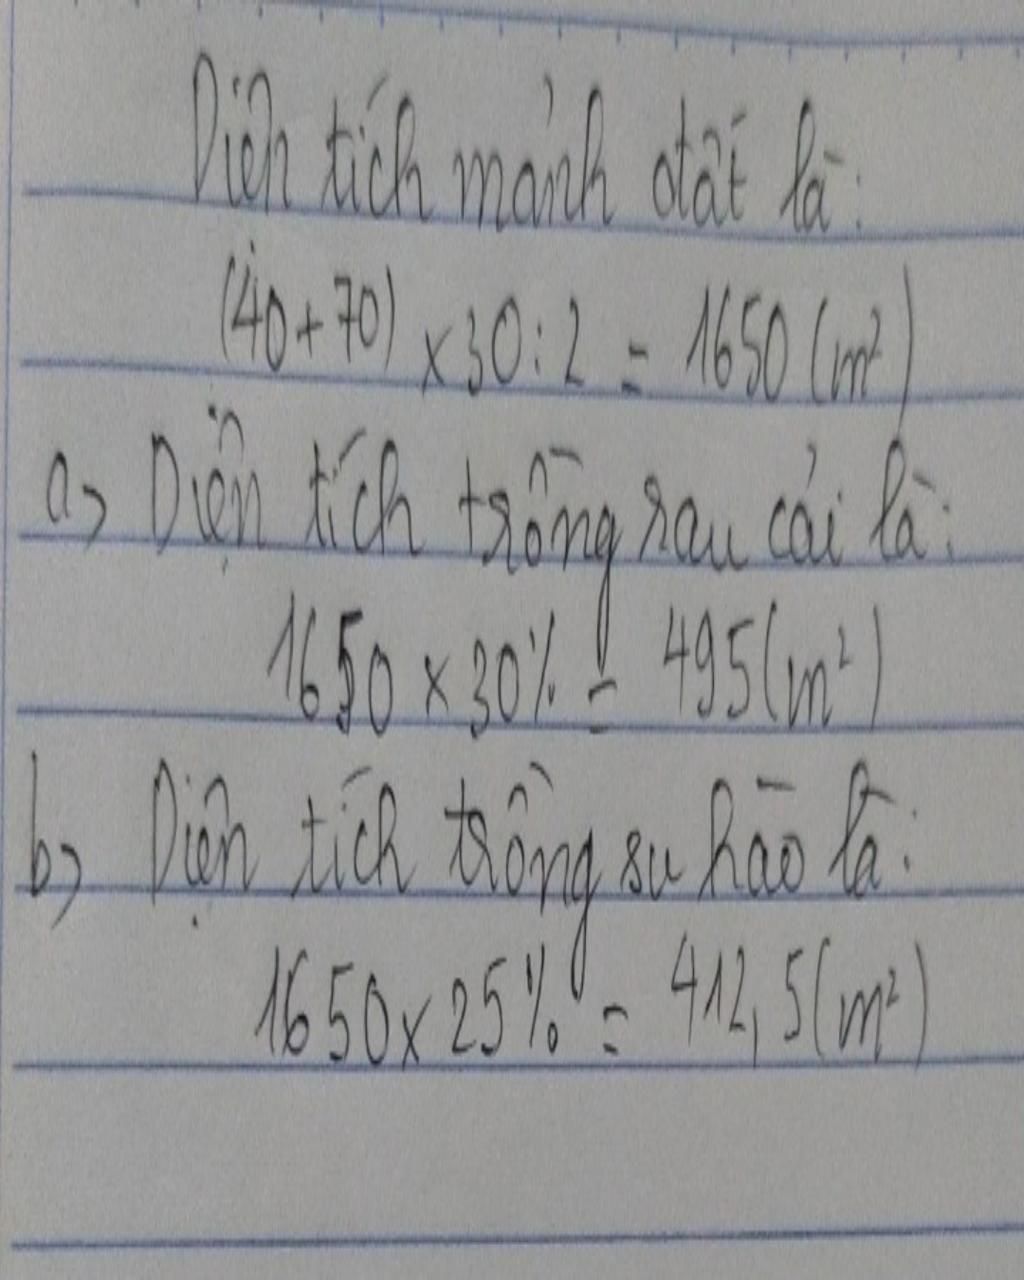 Diện tích mảnh đất là:
(40+70) x 30 : 2 = 1650 (m²)
a, Diện tích trồng rau cải là:
1650 x 30% = 495 (m²)
b, Diện tích trồng su hào là:
1650 x 25% = 412,5 (m²)